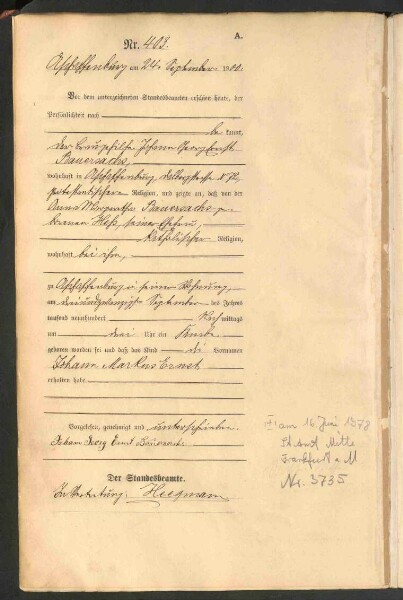 A.
Nr. 403.
Aschaffenburg am 24. September 1900.
Vor dem unterzeichneten Standesbeamten erschien heute, der
Persönlichkeit nach
be kannt,
der Johann Georg Ernst
Bauersachs,
wohnhaft in Aschaffenburg,
protestantischer Religion, und zeigte an, daß von der
Anna Margaretha Bauersachs, ge-
borenen Heß, seiner Ehefrau,
katholischer Religion,
wohnhaft bei ihm,
zu Aschaffenburg in seiner Wohnung,
am dreiundzwanzigsten September des Jahres
tausend neunhundert Nach mittags
um drei Uhr ein Knabe
geboren worden sei und daß das Kind die Vornamen
Johann Markus Ernst
erhalten habe.
Vorgelesen, genehmigt und unterschrieben.
Johann Georg Ernst Bauersachs
Der Standesbeamte.
In Vertretung: Hiegmann
am 16. Juni 1978
St. Amt Mitte
Frankfurt a M
Nr. 3735